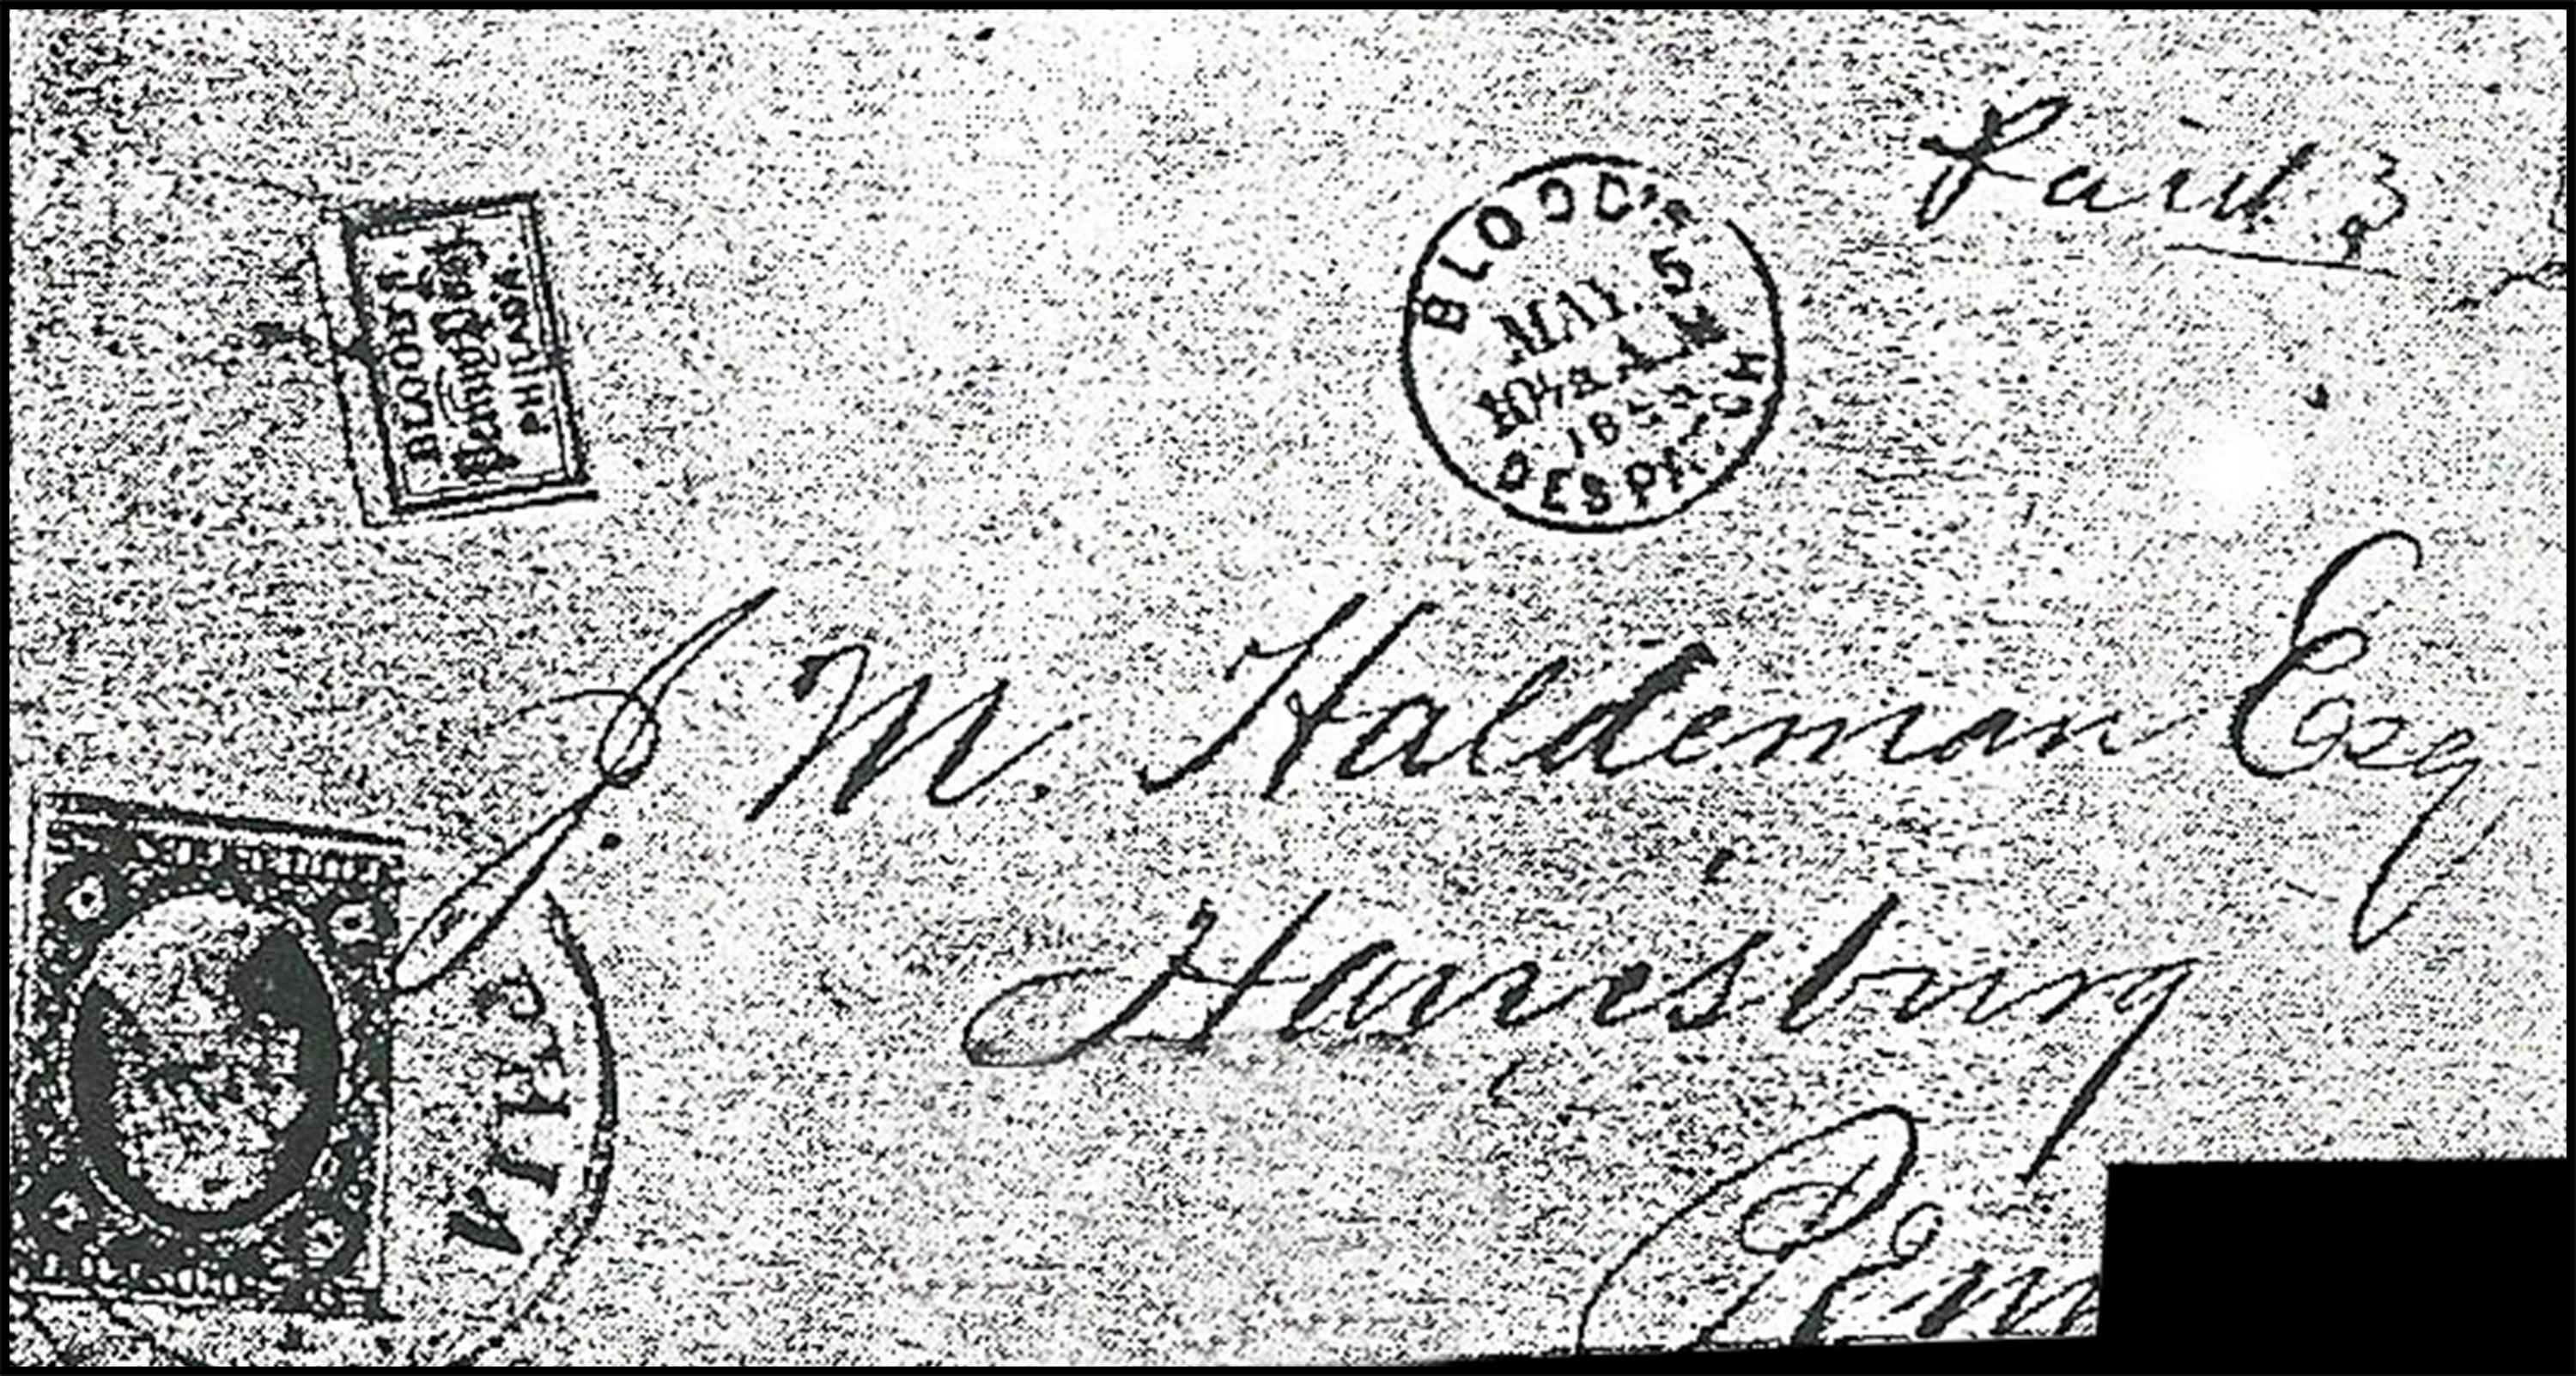 Paid. 3
BLOOD'S
MAY. 5
10½ A.M
185
DESPATCH
BLOOD'S
Penny Post
PHILAD'A.
J. M. Haldeman Esq
Harrisburg
Penn
PHILA